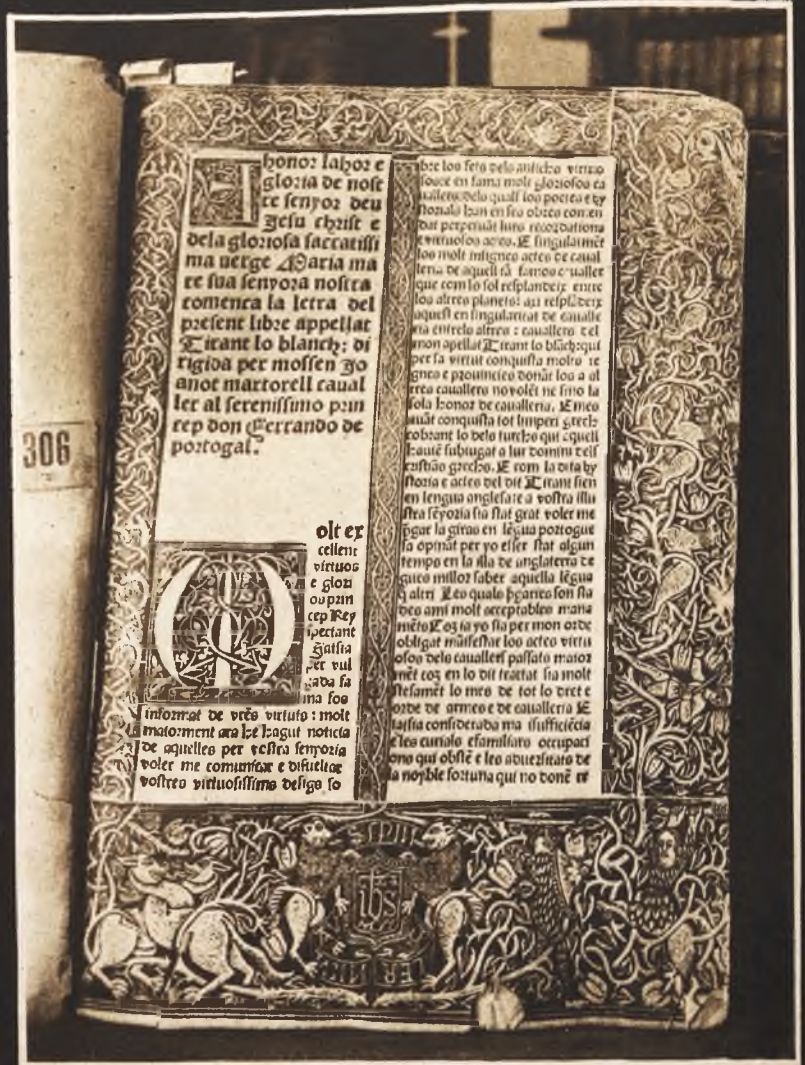 306
A honor lahor e
gloria de nost
re senyor deu
Jesu christ e
dela gloriosa sacratissi
ma verge Maria ma
re sua senyora nostra
comença la letra del
present libre appellat
Tirant lo blanch: di
rigida per mossen Jo
anot martorell caual
ler al serenissimo prin
cep don Ferrando de
portogal.
Molt ex
cellent
virtuos
e glori
os prin
cep Rey
spectant
Jatsia
per vul
gada fa
ma fos
informat de vr̃es virtuts: molt
maiorment ara he hagut noticia
de aquelles per vostra senyoria
voler me comunicar e disuetlar
vostres virtuosissims desigs so
bre los fets dels antichs virtuo
sos e en fama molt gloriosos ca
uallers dels quals los poetes e hy
storials han en ses obres comen
dat perpetuãt lurs recordations
e virtuosos actes. E singularmẽt
los molt insignes actes de caual
leria de aquell tã famos caualler
que com lo sol resplandeix entre
los altres planets: axi resplãdeix
aquest en singularitat de caualle
ria entrels altres cauallers del
mon apellat Tirant lo blãch: qui
per sa virtut conquista molts re
gnes e prouincies donãt los a al
tres cauallers no volẽt ne sino la
sola honor de caualleria. E mes
auãt conquista tot limperi grech
cobrant lo dels turchs qui aquell
hauiẽ subiugat a lur domini dels
cristiãs grechs. E com la dita hy
storia e actes del dit Tirant sien
en lengua anglesa: e a vostra illu
stra sẽyoria sia stat grat voler me
p̃gar la giras en lẽgua portogue
sa opinãt per yo esser stat algun
temps en la illa de anglaterra de
gues millor saber aquella lẽgua
q̃ altri Les quals p̃garies son sta
des ami molt acceptables mana
mẽts Com ia yo sia per mon orde
obligat manifestar los actes virtu
osos dels cauallers passats maior
mẽt com en lo dit tractat sia molt
stesamẽt lo mes de tot lo dret e
orde de armes e de caualleria E
iatsia considerada ma isuficiẽcia
e les curials e familiars occupaci
ons qui obstẽ e les aduersitats de
la noyble fortuna qui no donẽ re
ihs